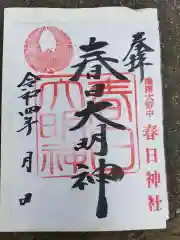 奉拝
春日大明神
春日神社
春日大明神
令和四年 月 日